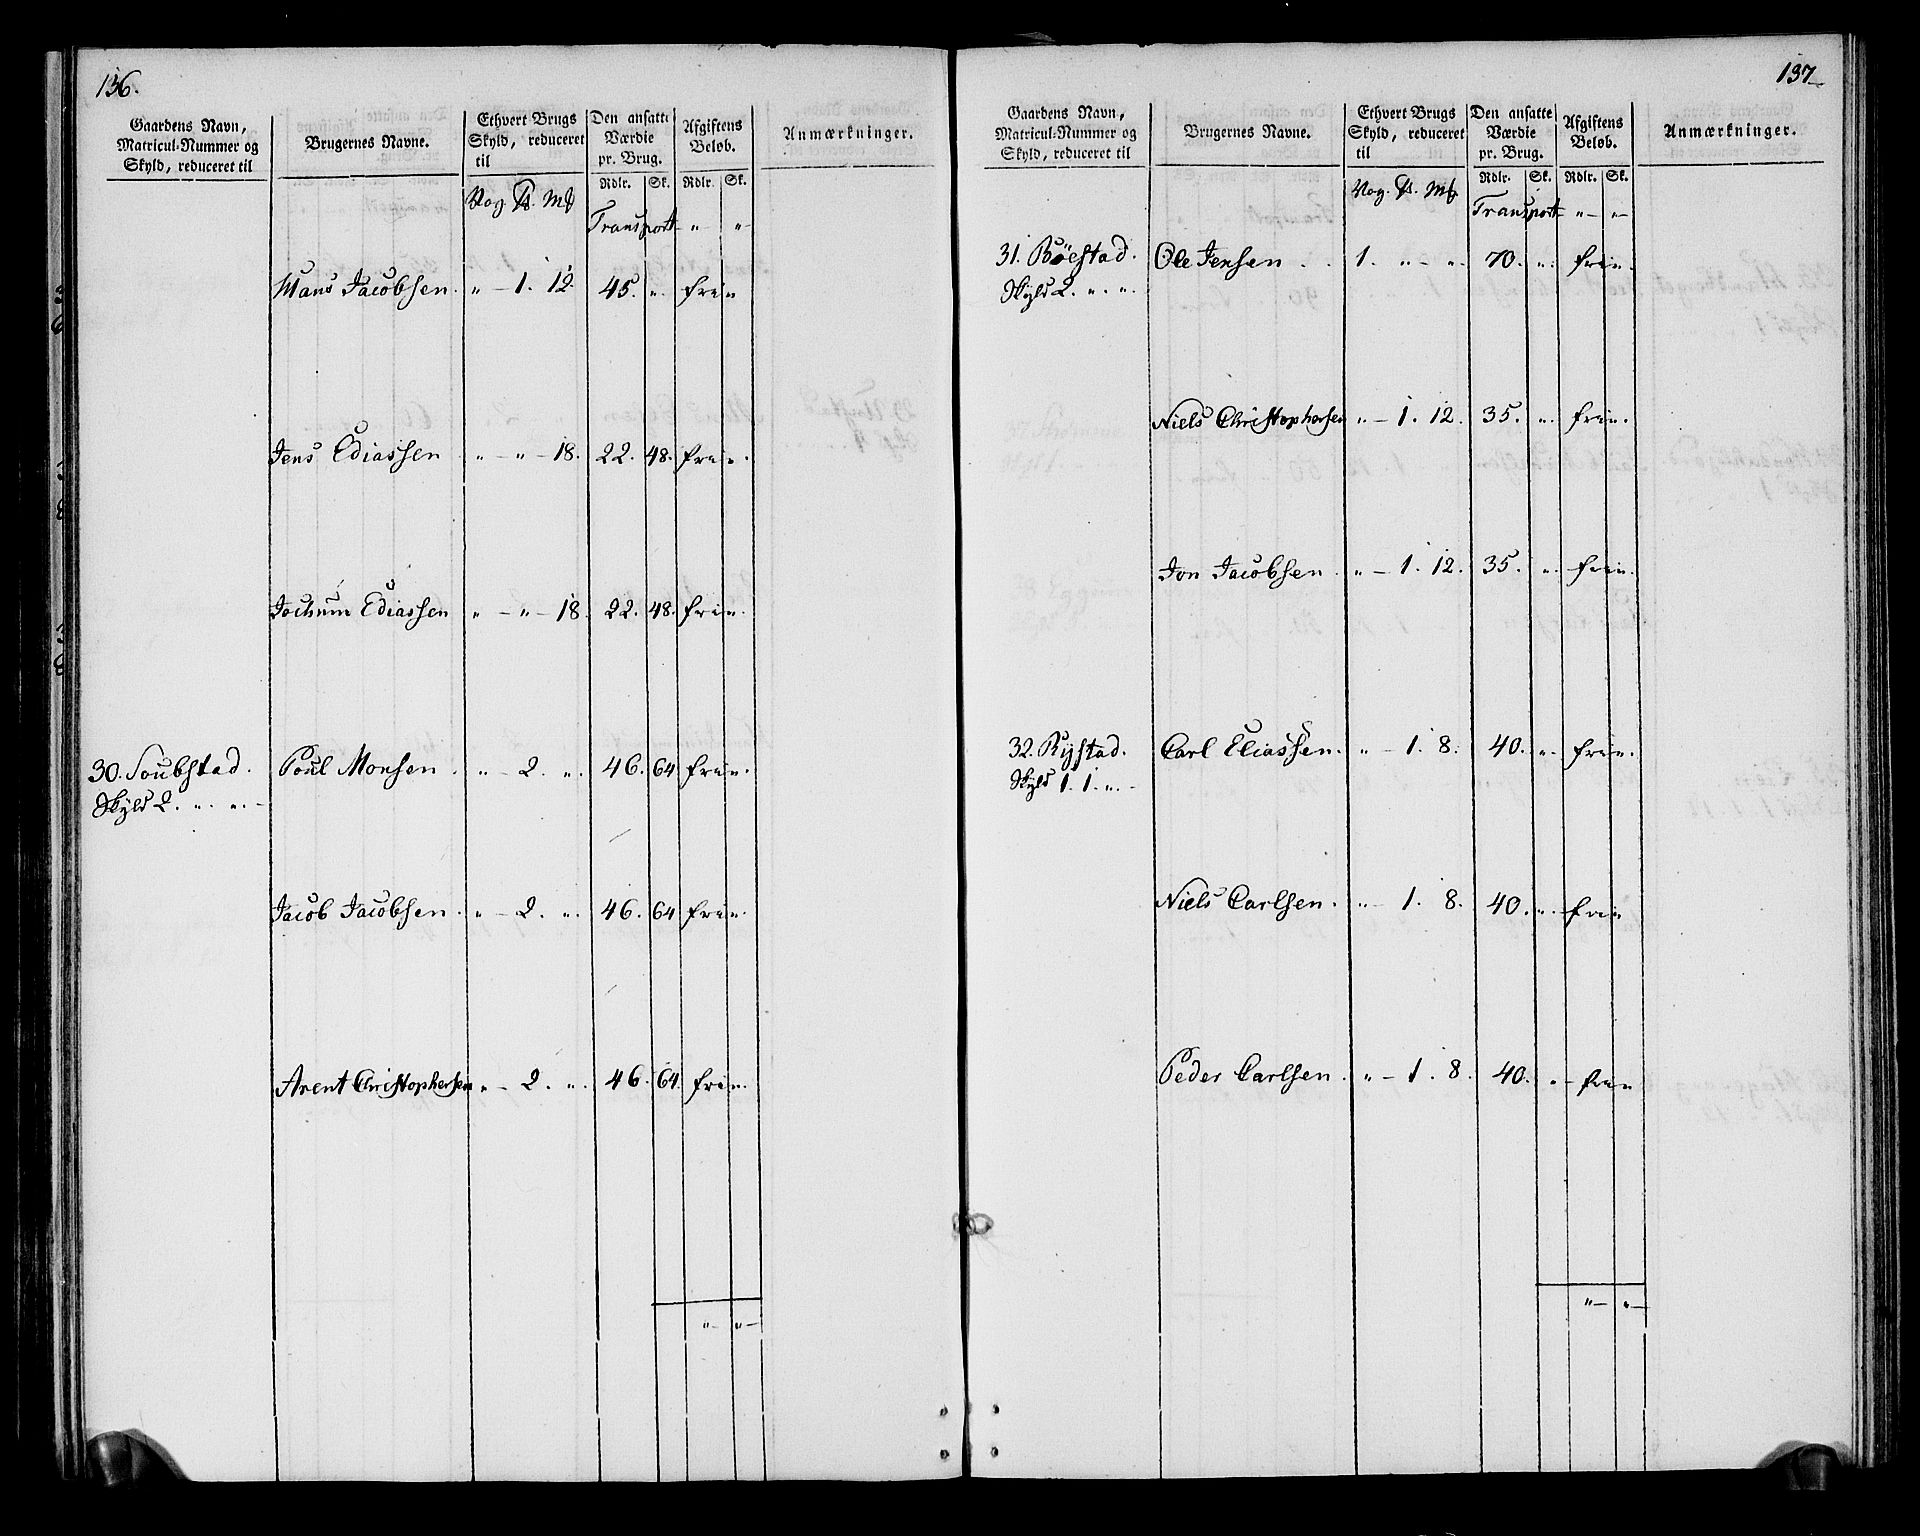 136.
Gaardens Navn, Matricul-Nummer og Skyld, reduceret til
Brugernes Navne.
Ethvert Brugs Skyld, reduceret til
Den ansatte Værdie pr. Brug.
Afgiftens Beløb.
Anmærkninger.
Rdlr. Sk. Rdlr. Sk.
Vog. Mk
Transport - " - " -
Hans Jacobsen. " - 1. 12. 45. ". frie
Jens Ediassen " - " - 18. 22. 48. frie.
Jochum Ediassen " - " - 18. 22. 48. frie.
30. Soubstad. Poul Monsen. " - 2. ". 46. 64 frie.
Skyld 2. ". ". -
Jacob Jacobsen. " - 2. ". 46. 64 frie.
Arent Christophersen " - 2. ". 46. 64. frie.
" - " -
137
Gaardens Navn, Matricul-Nummer og Skyld, reduceret til
Brugernes Navne.
Ethvert Brugs Skyld, reduceret til
Den ansatte Værdie pr. Brug.
Afgiftens Beløb.
Anmærkninger.
Rdlr. Sk. Rdlr. Sk.
Vog. Mk
Transport - " - " -
31. Böestad. Ole Jensen . . 1. " - ". 70. ". frie.
Skyld 2. ". ".
Niels Christophersen " - 1. 12. 35. ". frie.
Jon Jacobsen. " - 1. 12. 35. ". frie.
32. Rystad. Carl Eliassen. " - 1. 8. 40. ". frie.
Skyld 1. 1. ". -
Niels Carlsen. " - 1. 8. 40. ". frie
Peder Carlsen. " - 1. 8. 40. " - frie
" - " -